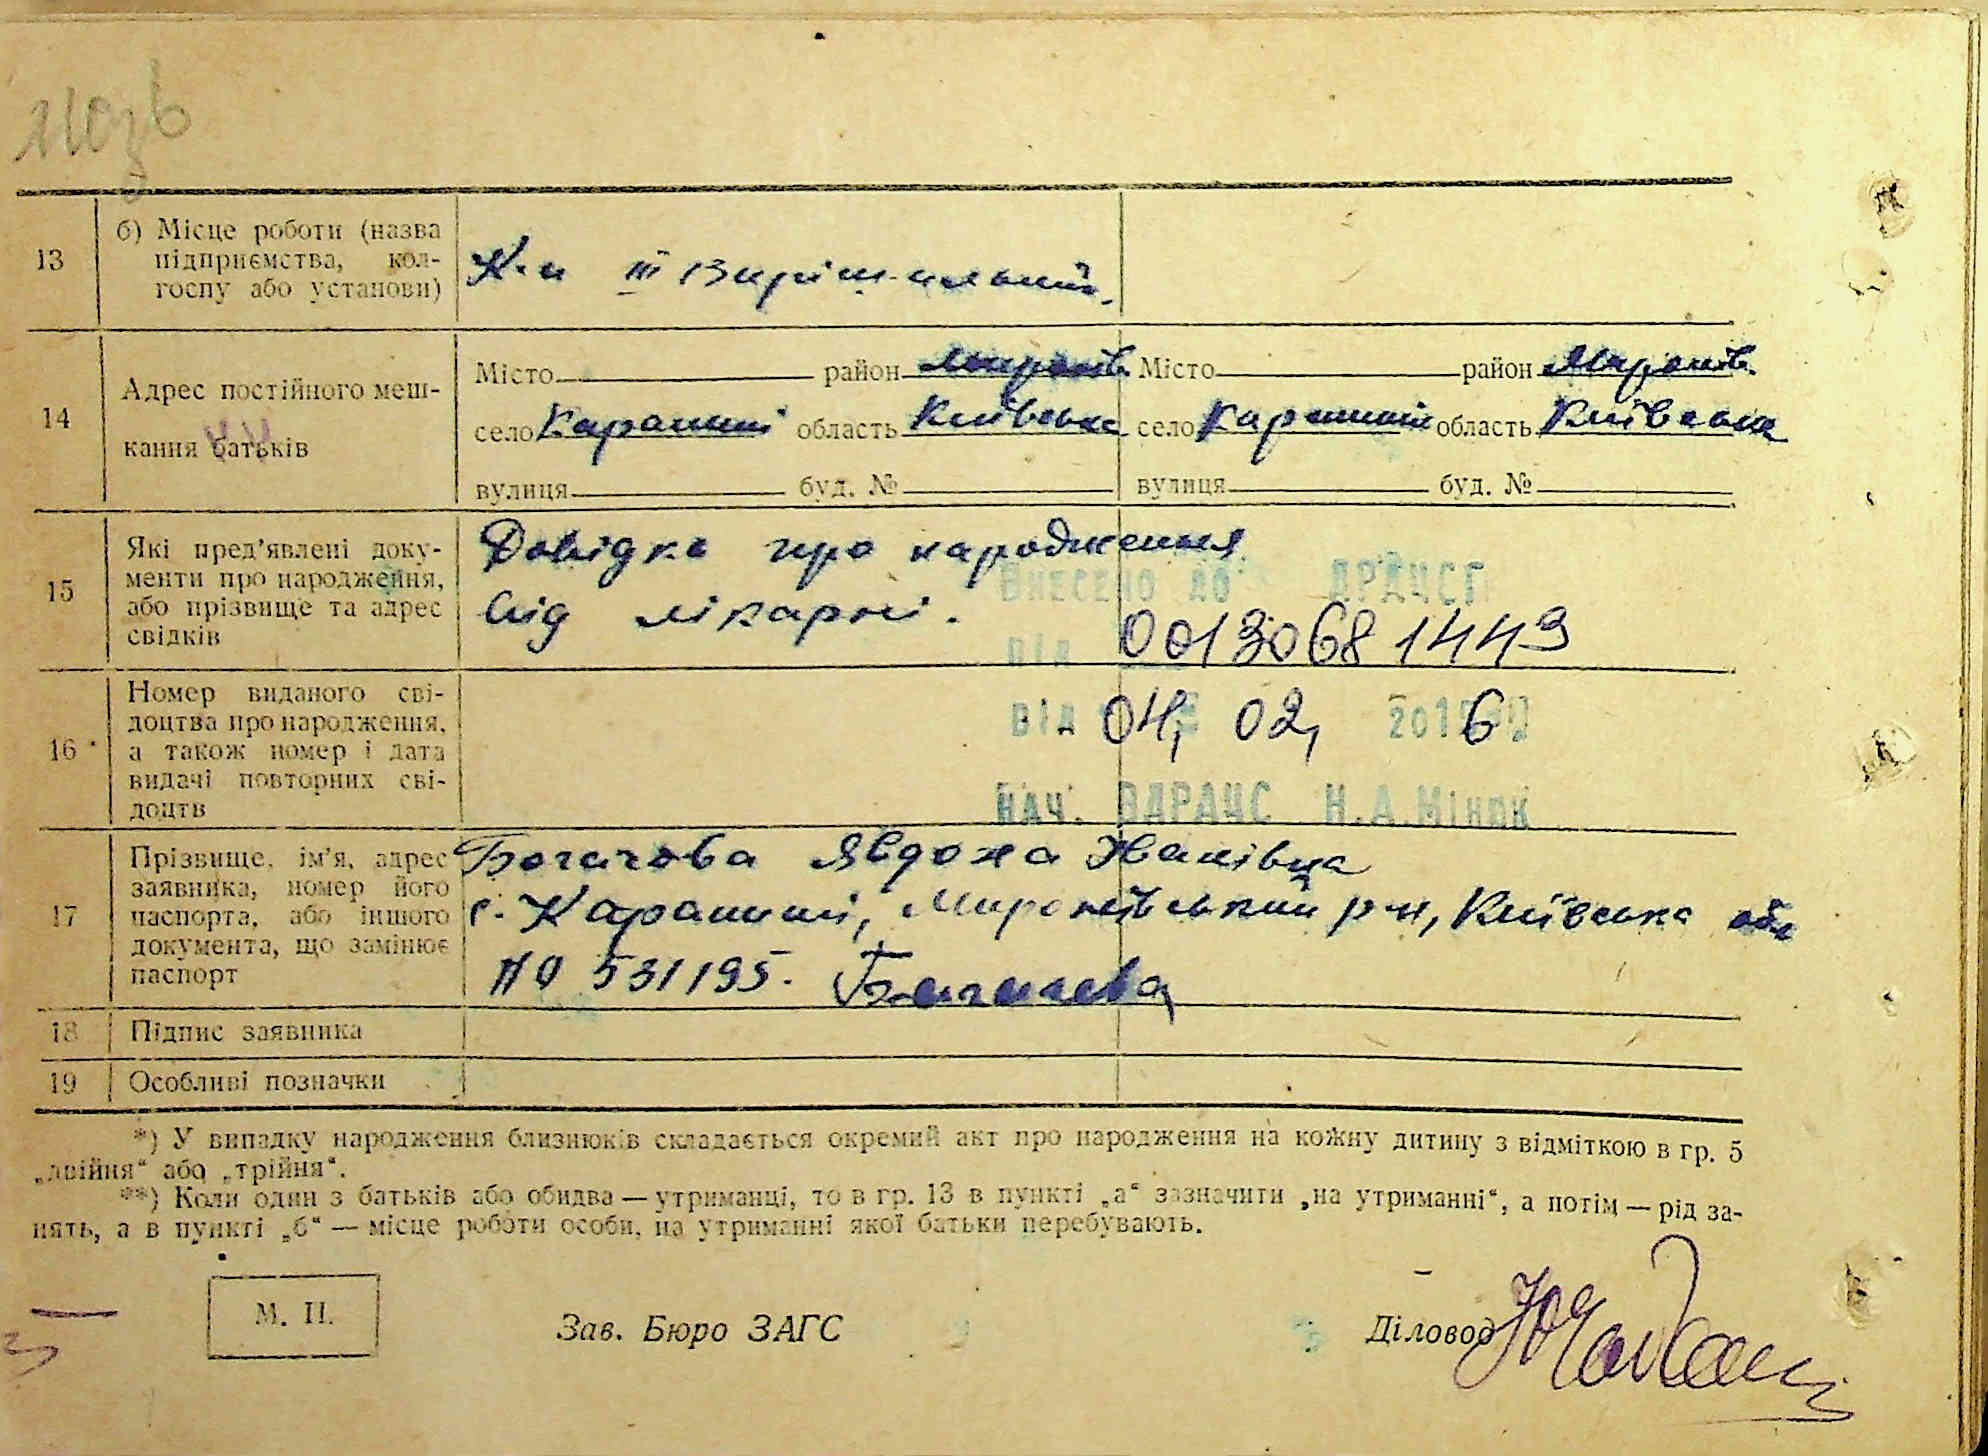 13
б) Місце роботи (назва
підприємства, кол-
госпу або установи)
К-п ІІІ Вирішальний.
14
Адрес постійного меш-
кання батьків
Місто район Миронів. Місто район Миронів.
село Карапиші область Київська село Карапиші область Київська
вулиця буд. № вулиця буд. №
15
Які пред'явлені доку-
менти про народження,
або прізвище та адрес
свідків
Довідка про народження
від лікарні.
Внесено до ДРАЦСГ
від 00130681443
16
Номер виданого сві-
доцтва про народження,
а також номер і дата
видачі повторних сві-
доцтв
від 04, 02, 2016
Нач. ВДРАЦС Н.А.Мінюк
17
Прізвище, ім'я, адрес
заявника, номер його
паспорта, або іншого
документа, що замінює
паспорт
Богачова Явдоха Іванівна
с. Карапиші, Миронівський р-н, Київська обл
531195.
18 Підпис заявника
19 Особливі позначки
*) У випадку народження близнюків складається окремий акт про народження на кожну дитину з відміткою в гр. 5
„двійня“ або „трійня“.
**) Коли один з батьків або обидва — утриманці, то в гр. 13 в пункті „а“ зазначити „на утриманні“, а потім — рід за-
нять, а в пункті „б“ — місце роботи особи, на утриманні якої батьки перебувають.
М. П.
Зав. Бюро ЗАГС
Діловод